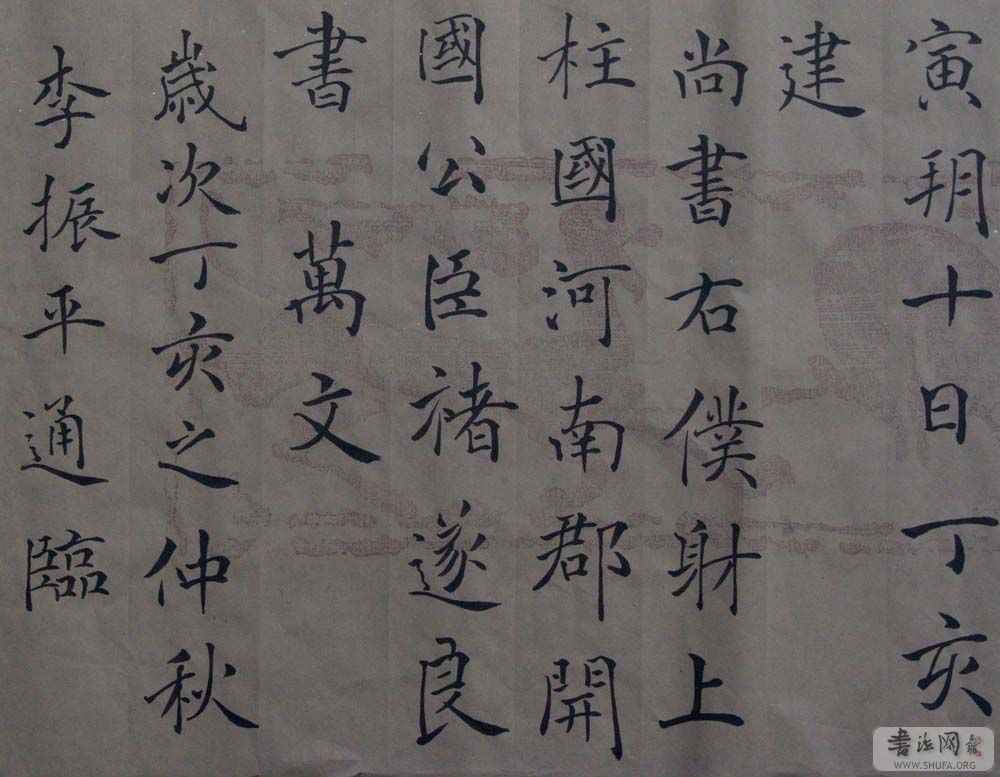 寅朔十日丁亥
建
尚書右僕射上
柱國河南郡開
國公臣褚遂良
書 萬文
歲次丁亥之仲秋
李振平通臨
書法网
WWW.SHUFA.ORG